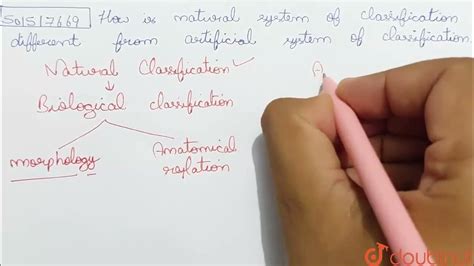 501517669 How is natural system of classification
different from artificial system of classification.
Natural Classification ✓ A
↓
Biological classification
morphology Anatomical
relation
doubtnut